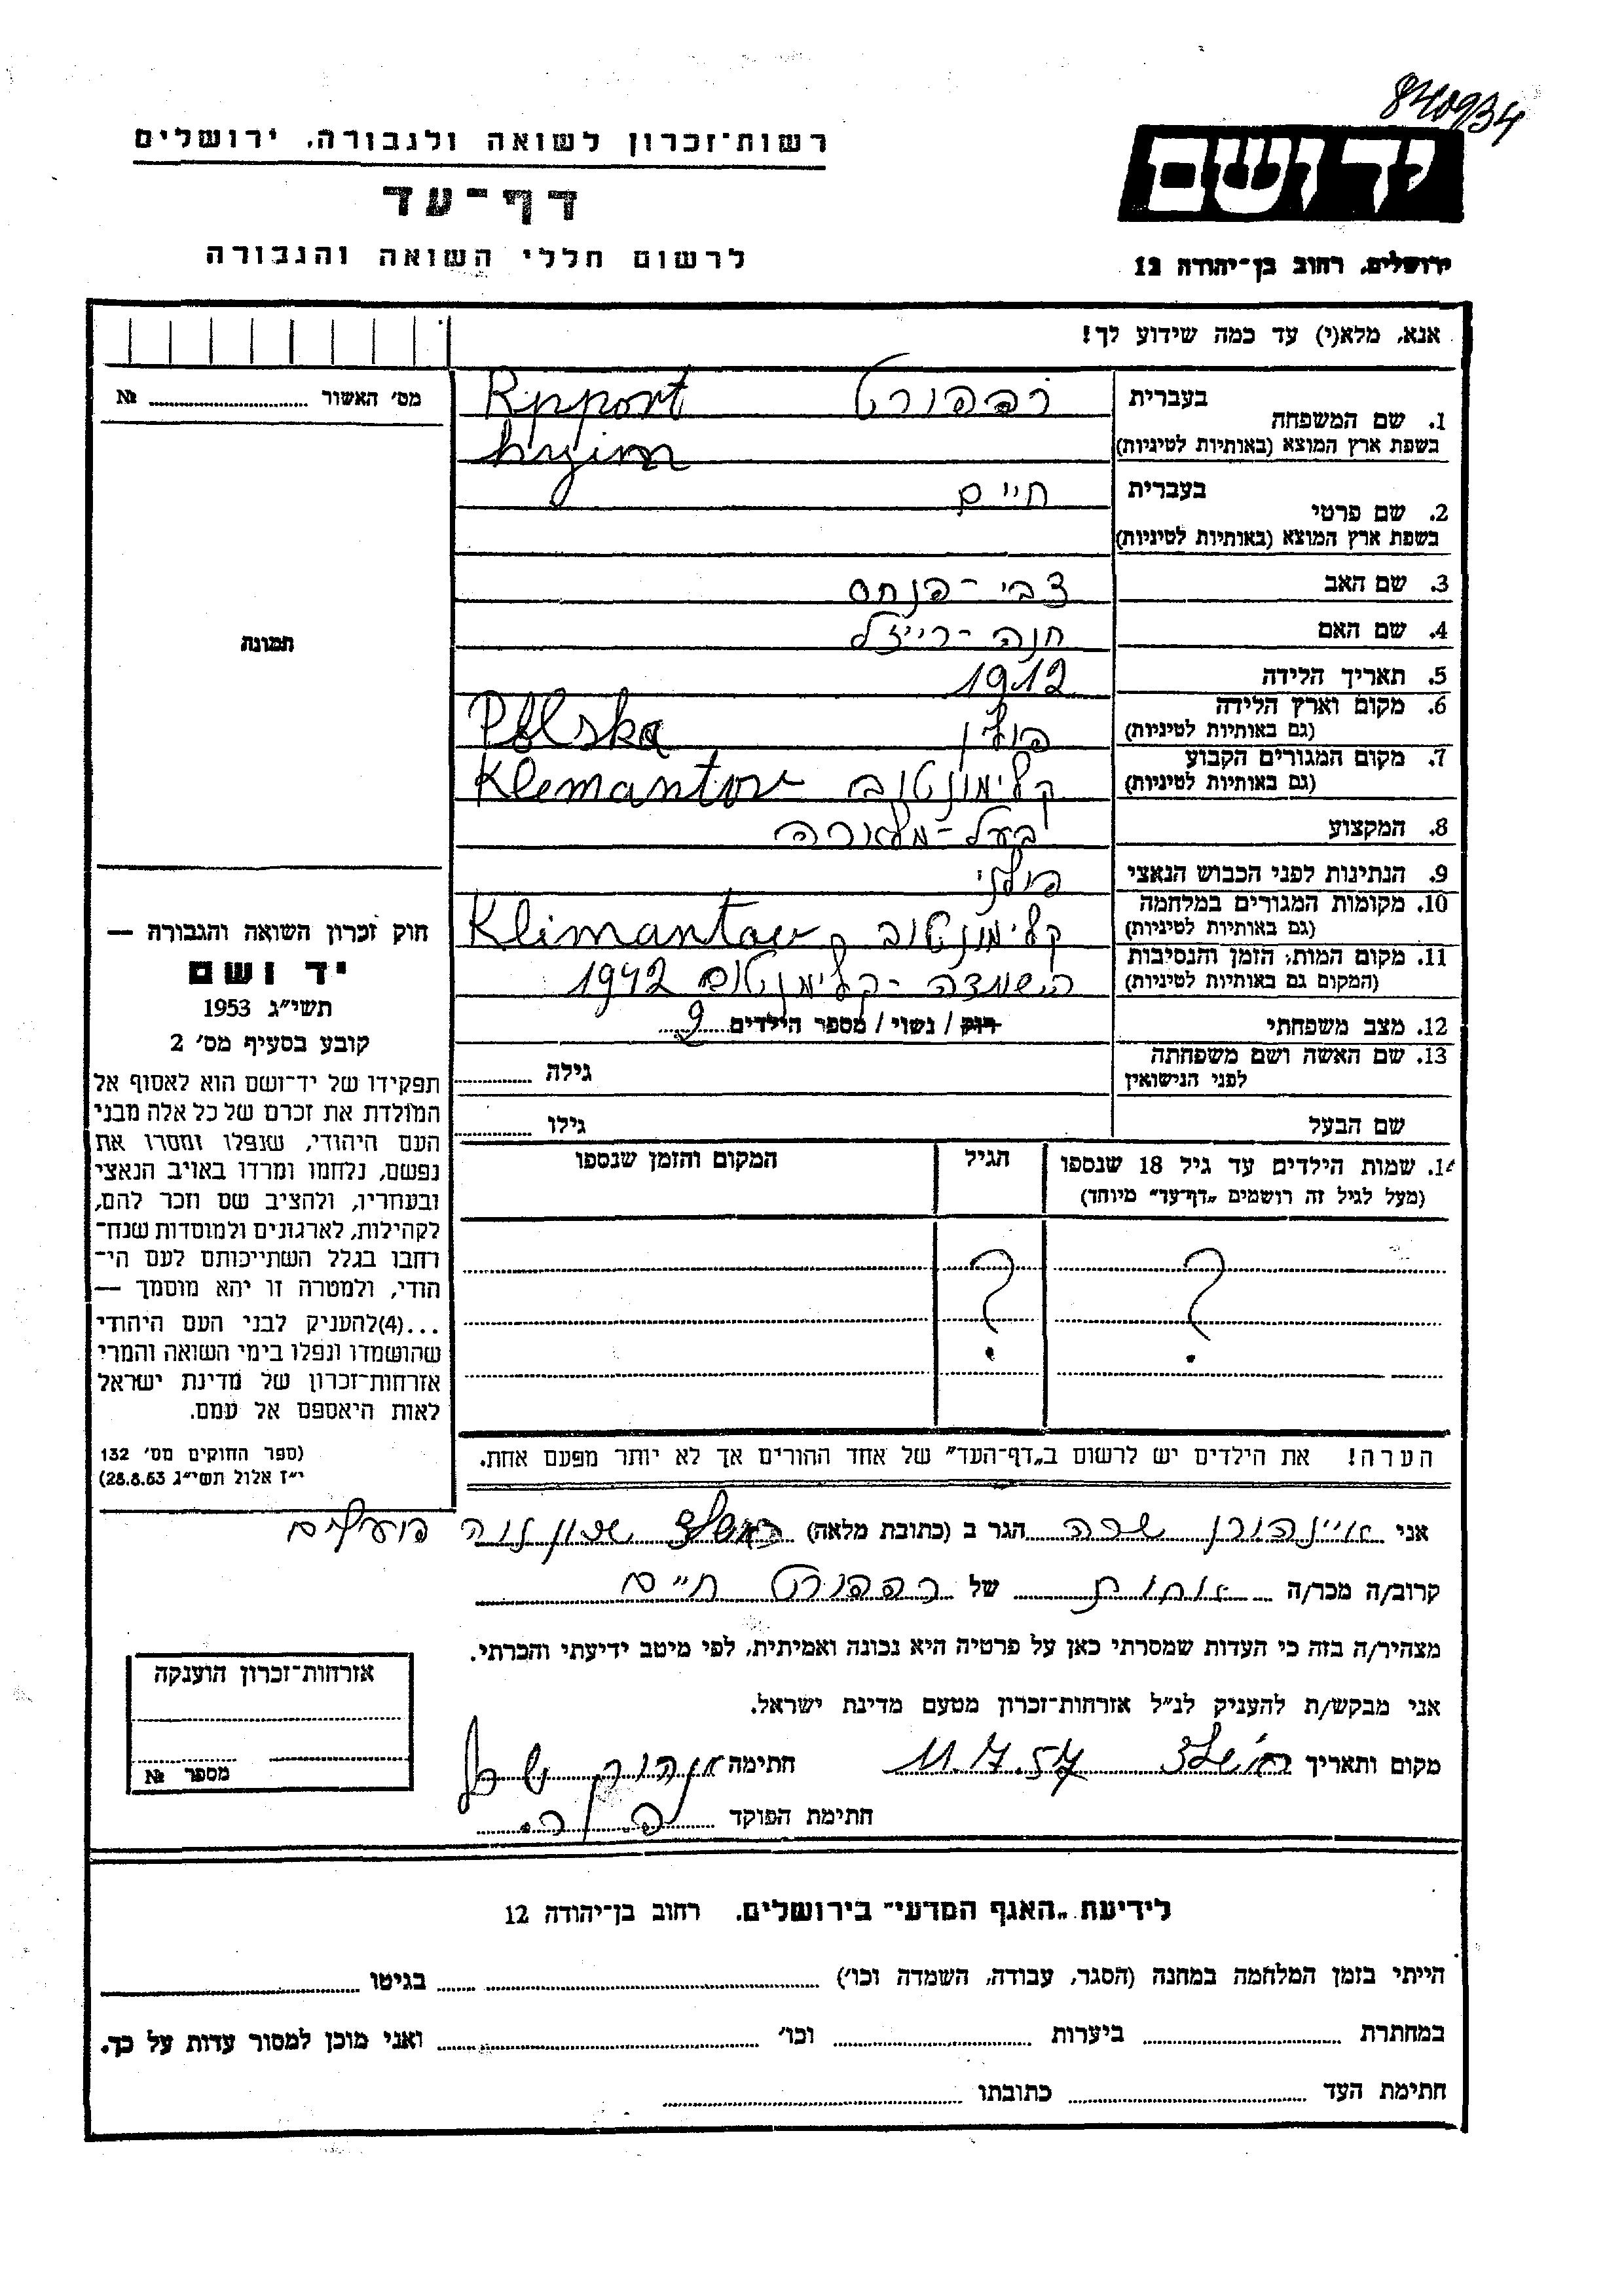 840934
יד ושם
ירושלים, רחוב בן־יהודה 12
רשות־זכרון לשואה ולגבורה, ירושלים
דף־עד
לרשום חללי השואה והגבורה
אנא, מלא(י) עד כמה שידוע לך!
מס׳ האשור № 
תמונה
חוק זכרון השואה והגבורה —
יד ושם
תשי״ג 1953
קובע בסעיף מס׳ 2
תפקידו של יד־ושם הוא לאסוף אל
המולדת את זכרם של כל אלה מבני
העם היהודי, שנפלו ומסרו את
נפשם, נלחמו ומרדו באויב הנאצי
ובעוזריו, ולהציב שם וזכר להם,
לקהילות, לארגונים ולמוסדות שנח־
רבו בגלל השתייכותם לעם הי־
הודי, ולמטרה זו יהא מוסמך —
...(4)להעניק לבני העם היהודי
שהושמדו ונפלו בימי השואה והמרי
אזרחות־זכרון של מדינת ישראל
לאות היאספם אל עמם.
(ספר החוקים מס׳ 132
י״ז אלול תשי״ג 28.8.53)
1. שם המשפחה בעברית רפפורט
בשפת ארץ המוצא (באותיות לטיניות) Rpport
hyim
2. שם פרטי בעברית חיים
בשפת ארץ המוצא (באותיות לטיניות)
3. שם האב צבי-פנחס
4. שם האם חנה-רייזל
5. תאריך הלידה 1912
6. מקום וארץ הלידה (גם באותיות לטיניות) פולין Polska
7. מקום המגורים הקבוע (גם באותיות לטיניות) קלימונטוב Klemantow
8. המקצוע בעל-מלאכה
9. הנתינות לפני הכבוש הנאצי פולני
10. מקומות המגורים במלחמה (גם באותיות לטיניות) קלימונטוב Klimantow
11. מקום המות, הזמן והנסיבות (המקום גם באותיות לטיניות) הושמדה-קלימנטוב 1942
12. מצב משפחתי רוק / נשוי / מספר הילדים 2
13. שם האשה ושם משפחתה לפני הנישואין גילה
שם הבעל גילו
14. שמות הילדים עד גיל 18 שנספו (מעל לגיל זה רושמים „דף־עד״ מיוחד) הגיל המקום והזמן שנספו
? ?
הערה! את הילדים יש לרשום ב„דף־העד״ של אחד ההורים אך לא יותר מפעם אחת.
אני איינהורן שרה הגר ב (כתובת מלאה) שכון נוה פועלים
קרוב/ה מכר/ה אחות של רפפורט חיים
מצהיר/ה בזה כי העדות שמסרתי כאן על פרטיה היא נכונה ואמיתית, לפי מיטב ידיעתי והכרתי.
אני מבקש/ת להעניק לנ״ל אזרחות־זכרון מטעם מדינת ישראל.
מקום ותאריך 11.7.57 חתימה
חתימת הפוקד
אזרחות־זכרון הוענקה
מספר №
לידיעת „האגף המדעי״ בירושלים, רחוב בן־יהודה 12
הייתי בזמן המלחמה במחנה (הסגר, עבודה, השמדה וכו׳) בגיטו
במחתרת ביערות וכו׳ ואני מוכן למסור עדות על כך.
חתימת העד כתובתו